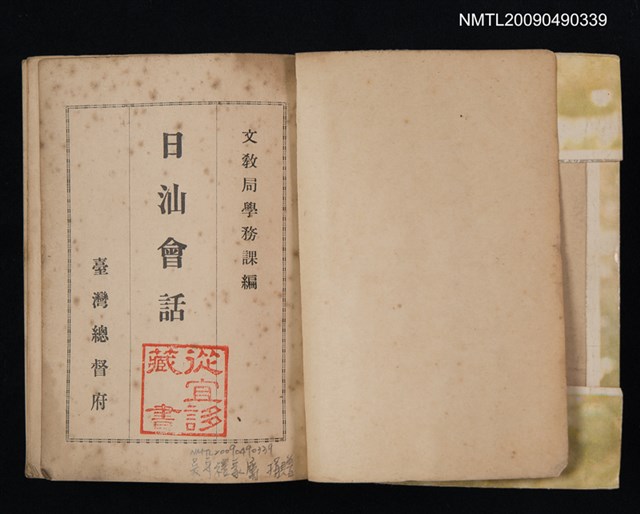 NMTL20090490339
文教局學務課編
日汕會話
臺灣總督府
從宜詠
藏書
NMTL20090490339